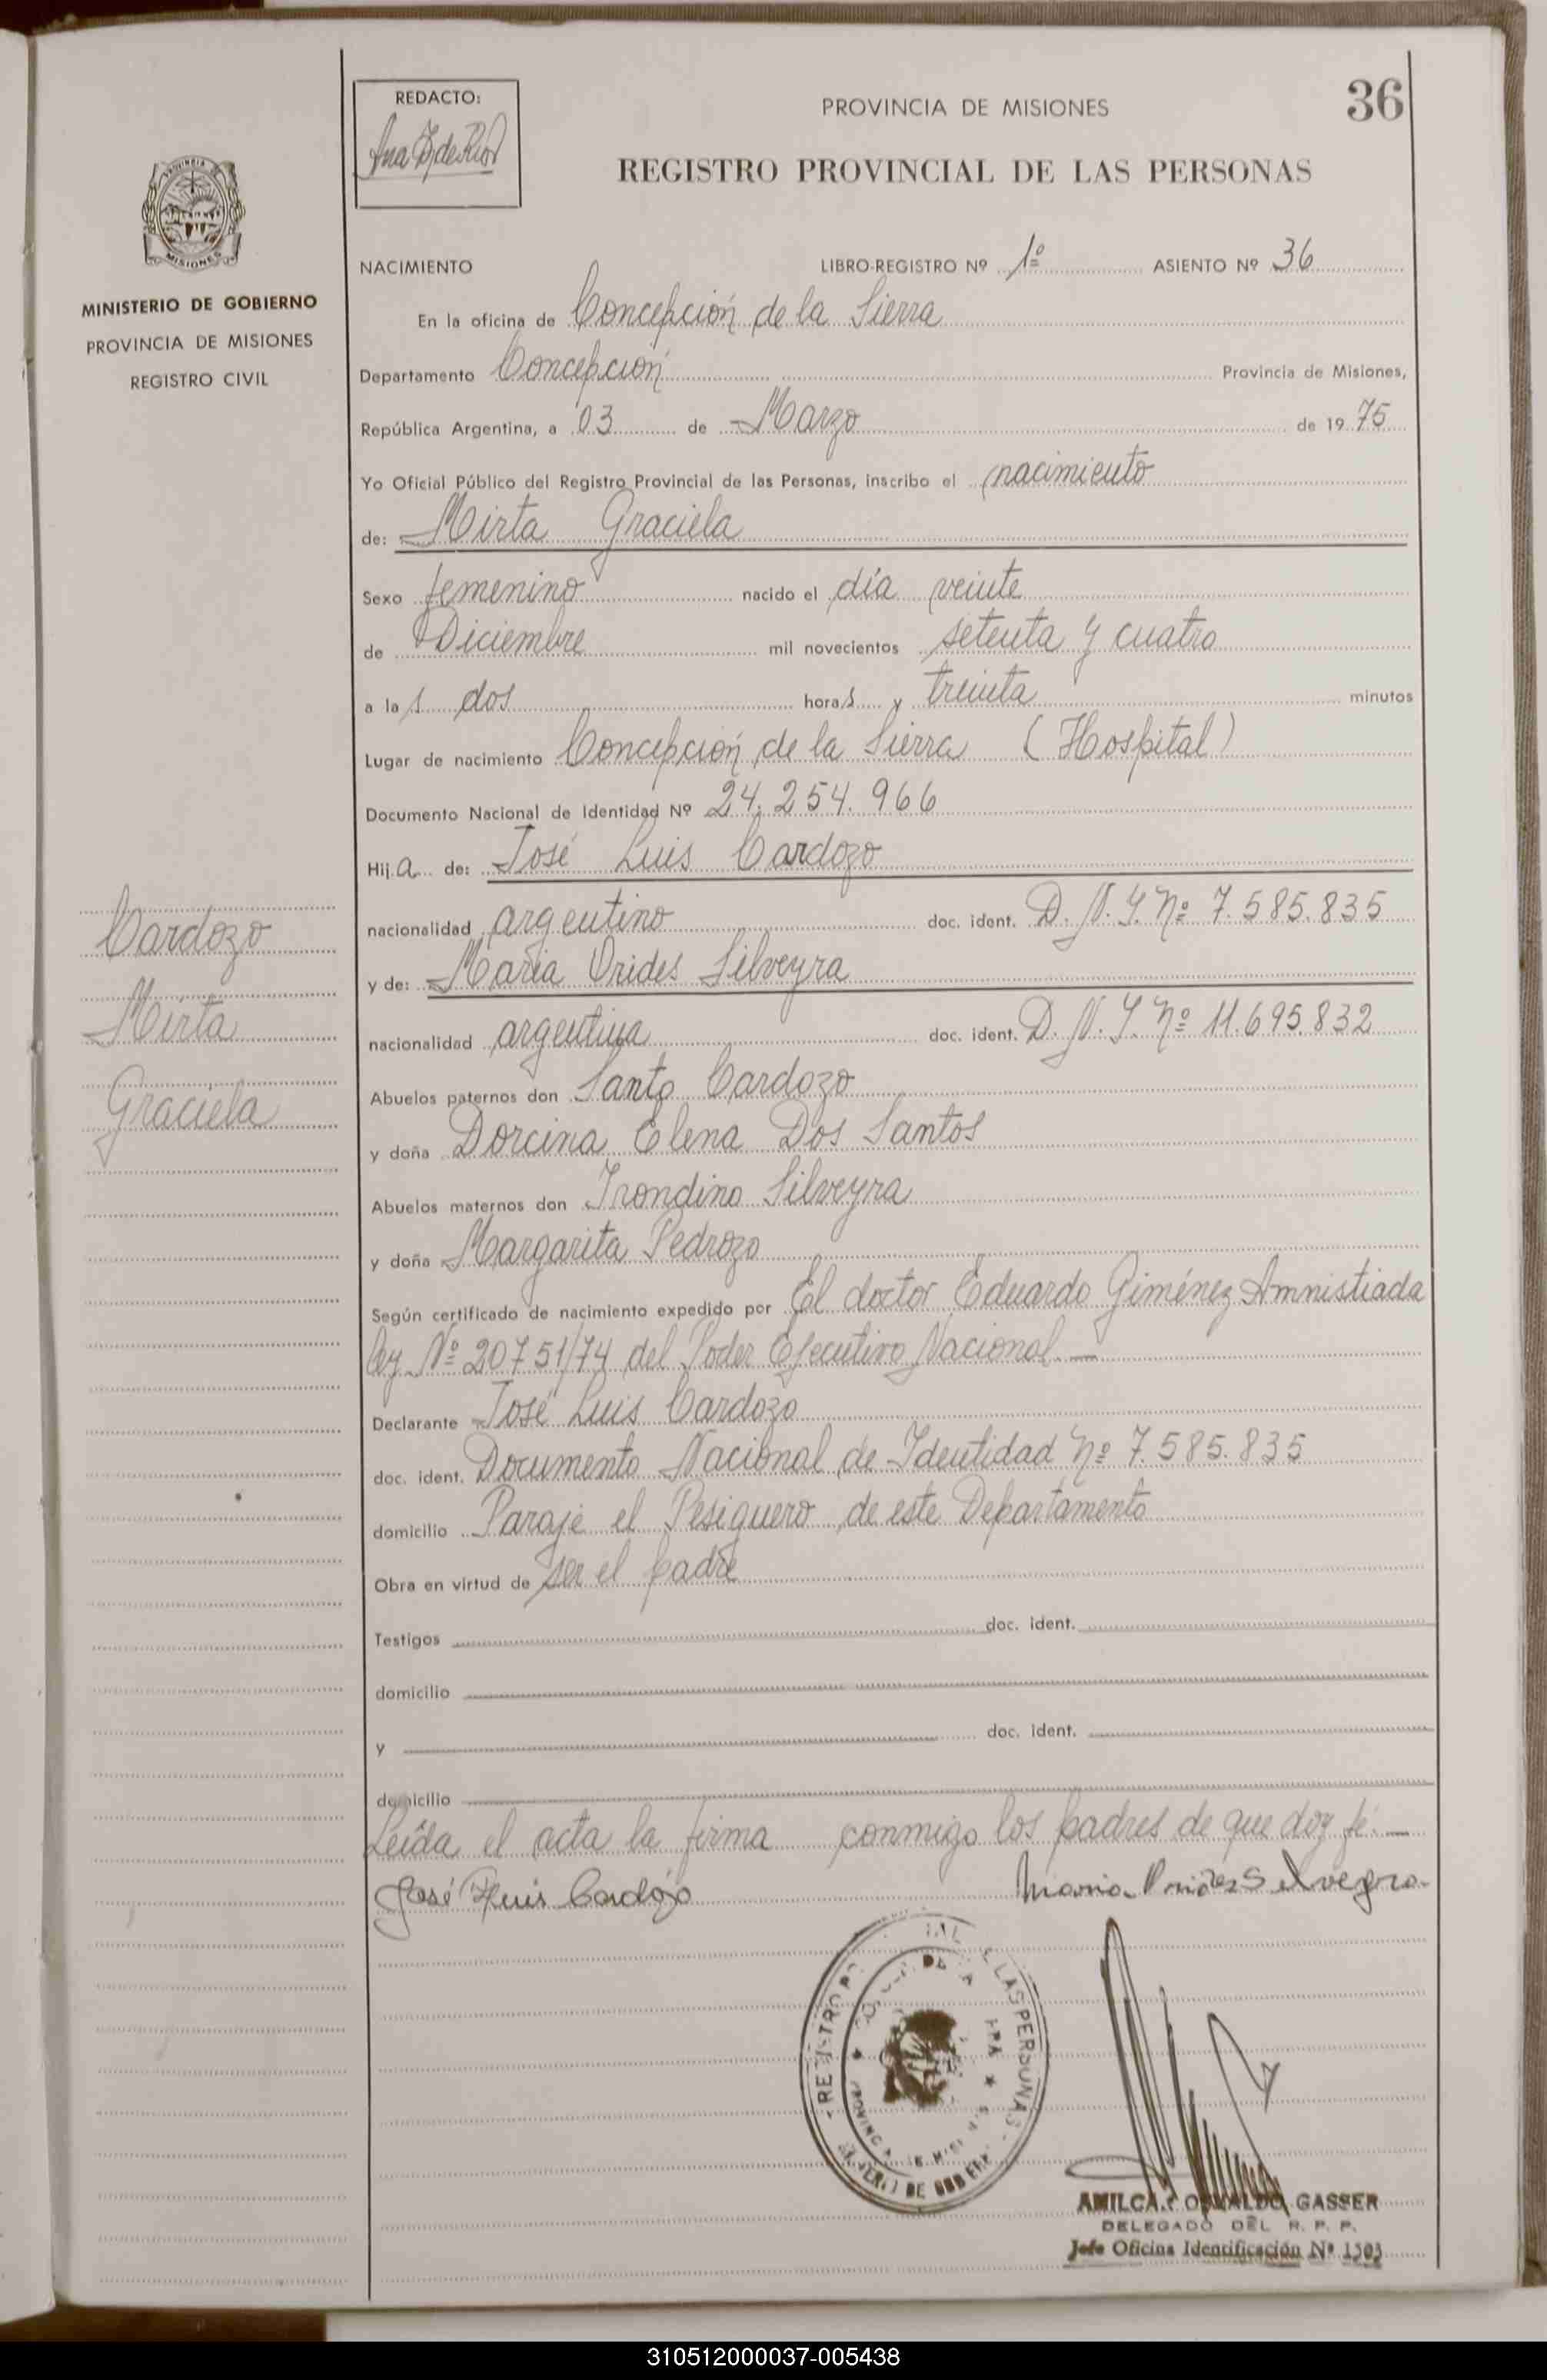 36
REDACTO:
Ana
PROVINCIA DE MISIONES
REGISTRO PROVINCIAL DE LAS PERSONAS
PROVINCIA
MISIONES
MINISTERIO DE GOBIERNO
PROVINCIA DE MISIONES
REGISTRO CIVIL
NACIMIENTO LIBRO-REGISTRO Nº 1º ASIENTO Nº 36
En la oficina de Concepción de la Sierra
Departamento Concepción Provincia de Misiones,
República Argentina, a 03 de Marzo de 1975
Yo Oficial Público del Registro Provincial de las Personas, inscribo el nacimiento
de: Mirta Graciela
Sexo femenino nacido el día veinte
de Diciembre mil novecientos setenta y cuatro
a las dos horas y treinta minutos
Lugar de nacimiento Concepción de la Sierra (Hospital)
Documento Nacional de Identidad Nº 24.254.966
Hija de: José Luis Cardozo
nacionalidad argentino doc. ident. D.N.I. Nº 7.585.835
y de: Maria Orides Silveyra
nacionalidad argentina doc. ident. D.N.I. Nº 11.695.832
Abuelos paternos don Santo Cardozo
y doña Dorcina Elena Dos Santos
Abuelos maternos don Trondino Silveyra
y doña Margarita Pedrozo
Según certificado de nacimiento expedido por El doctor Eduardo Giménez Amnistiada
ley Nº 20751/74 del Poder Ejecutivo Nacional.—
Declarante José Luis Cardozo
doc. ident. Documento Nacional de Identidad Nº 7.585.835
domicilio Paraje el Pesiguero de este Departamento
Obra en virtud de ser el padre
Testigos doc. ident.
domicilio
y doc. ident.
domicilio
Leída el acta la firma conmigo los padres de que doy fé.—
José Luis Cardozo Maria Orides Silveyra
Cardozo
Mirta
Graciela
LAS PERSONAS
AMILCAR OSVALDO GASSER
DELEGADO DEL R. P. P.
Jefe Oficina Identificación Nº 1303
310512000037-005438